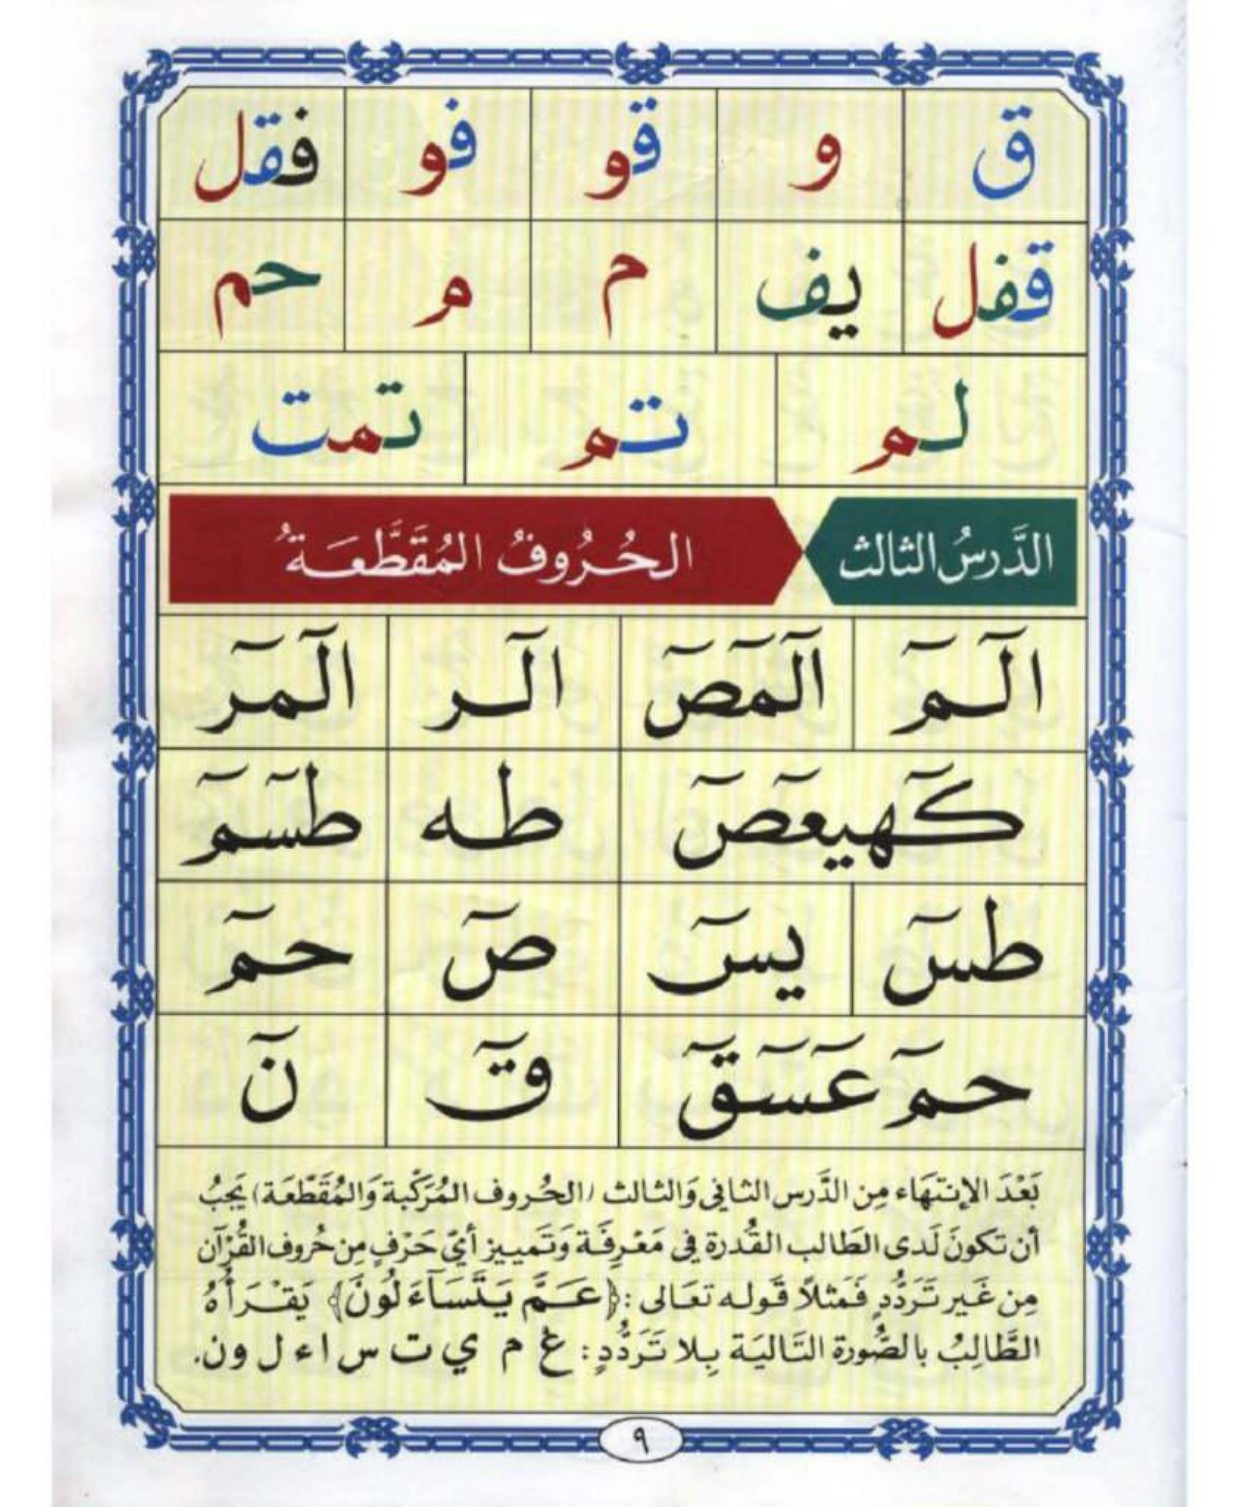 ق و قو فو فقل
قفل يف م م حم
لم تم تمت
الدَّرسُ الثالث الحُرُوفُ المُقَطَّعَةُ
الٓمٓ الٓمٓصٓ الٓر الٓمٓر
كٓهيعٓصٓ طه طسٓمٓ
طسٓ يسٓ صٓ حمٓ
حمٓ عٓسٓقٓ قٓ نٓ
بَعْدَ الإنتهَاء مِن الدَّرس الثاني وَالثالث (الحُروف المُرَكّبة وَالمُقَطّعَة) يَجبُ
أن تكونَ لَدى الطَالب القُدرة في مَعْرفَة وَتَمييز أيّ حَرْفٍ مِن حُروف القُرْآن
مِن غَير تَرَدُّدٍ فَمَثلاً قَوله تعَالى :﴿عَمَّ يَتَسَآءَلُونَ﴾ يَقْرَأُهُ
الطَّالِبُ بالصُّورة التَّاليَة بِلا تَرَدُّدٍ: ع م ي ت س ا ء ل و ن.
٩